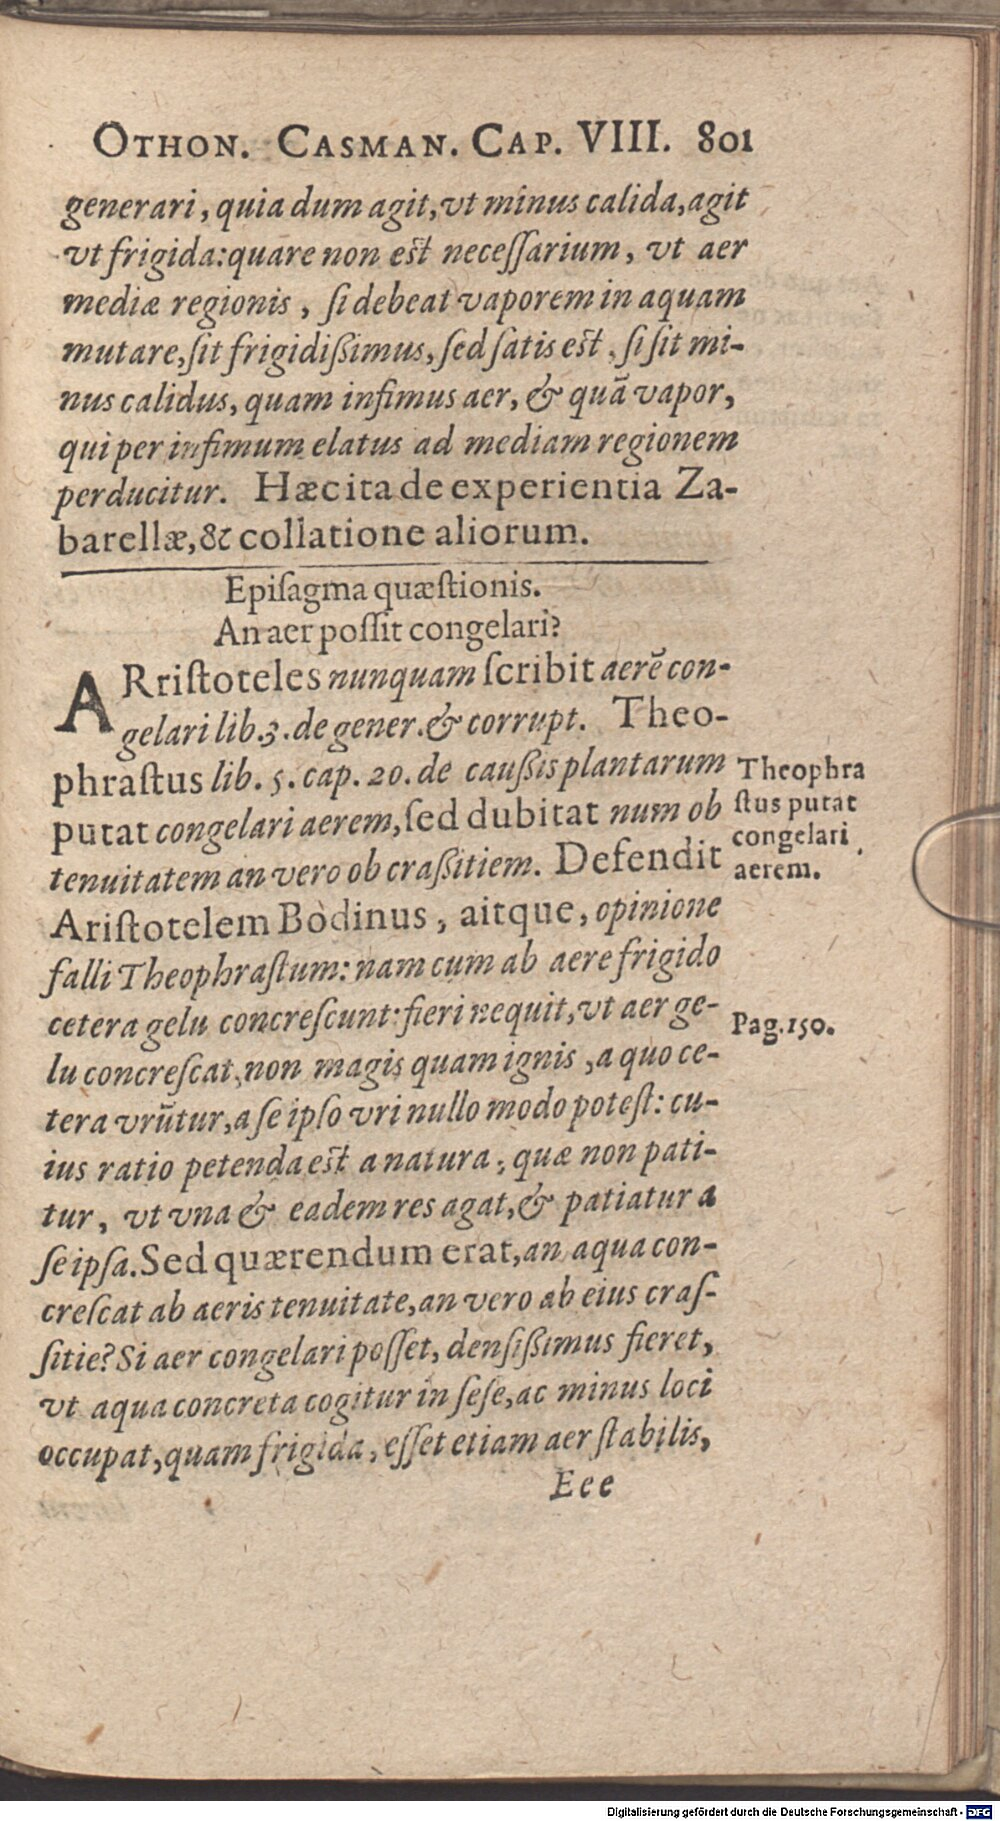 OTHON. CASMAN. CAP. VIII. 801
generari, quia dum agit, vt minus calida, agit
vt frigida: quare non est neceſſarium, vt aer
mediæ regionis, ſi debeat vaporem in aquam
mutare, ſit frigidißimus, ſed ſatis est, ſi ſit mi-
nus calidus, quam infimus aer, & quā vapor,
qui per infimum elatus ad mediam regionem
perducitur. Hæc ita de experientia Za-
barellæ, & collatione aliorum.
Epiſagma quæſtionis.
An aer poſſit congelari?
ARriſtoteles nunquam ſcribit aerē con-
gelari lib. 3. de gener. & corrupt. Theo-
phraſtus lib. 5. cap. 20. de caußis plantarum
putat congelari aerem, ſed dubitat num ob
tenuitatem an vero ob craßitiem. Defendit
Ariſtotelem Bodinus, aitque, opinione
falli Theophraſtum: nam cum ab aere frigido
cetera gelu concreſcunt: fieri nequit, vt aer ge-
lu concreſcat, non magis quam ignis, a quo ce-
tera vrūtur, a ſe ipſo vri nullo modo poteſt: cu-
ius ratio petenda est a natura, quæ non pati-
tur, vt vna & eadem res agat, & patiatur a
ſe ipſa. Sed quærendum erat, an aqua con-
creſcat ab aeris tenuitate, an vero ab eius craſ-
ſitie? Si aer congelari poſſet, denſißimus fieret,
vt aqua concreta cogitur in ſeſe, ac minus loci
occupat, quam frigida, eſſet etiam aer ſtabilis,
Eee
Theophra
ſtus putat
congelari
aerem.
Pag. 150.
Digitalisierung gefördert durch die Deutsche Forschungsgemeinschaft - DFG